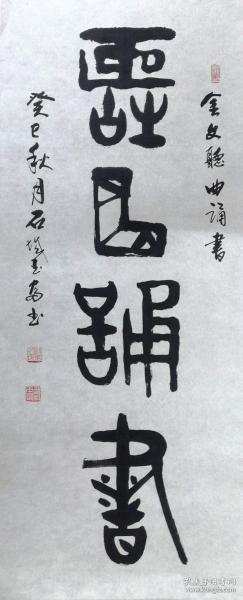 金文聽曲誦書
聽曲誦書
癸巳秋月石